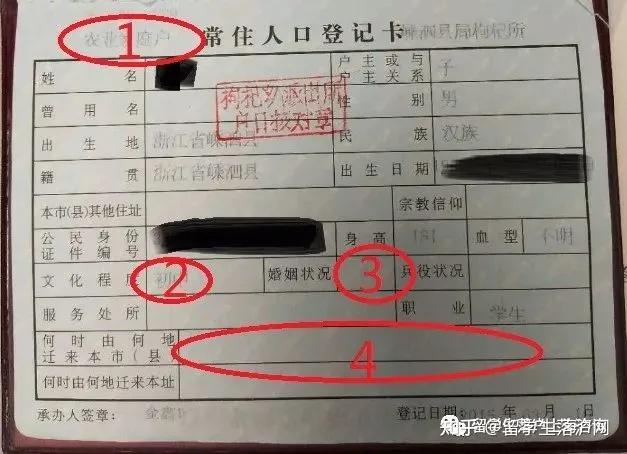 农业家庭户 常住人口登记卡
1
姓名 户主或与户主关系 子
曾用名 性别 男
户口核对章
出生地 浙江省嵊泗县 民族 汉族
籍贯 浙江省嵊泗县 出生日期
本市(县)其他住址 宗教信仰
公民身份证件编号 身高 181 血型 不明
文化程度 初中 2 婚姻状况 3 兵役状况
服务处所 职业 学生
何时由何地迁来本市(县) 4
何时由何地迁来本址
承办人签章: 登记日期: 年 月 日
知乎 @留学生落沪网